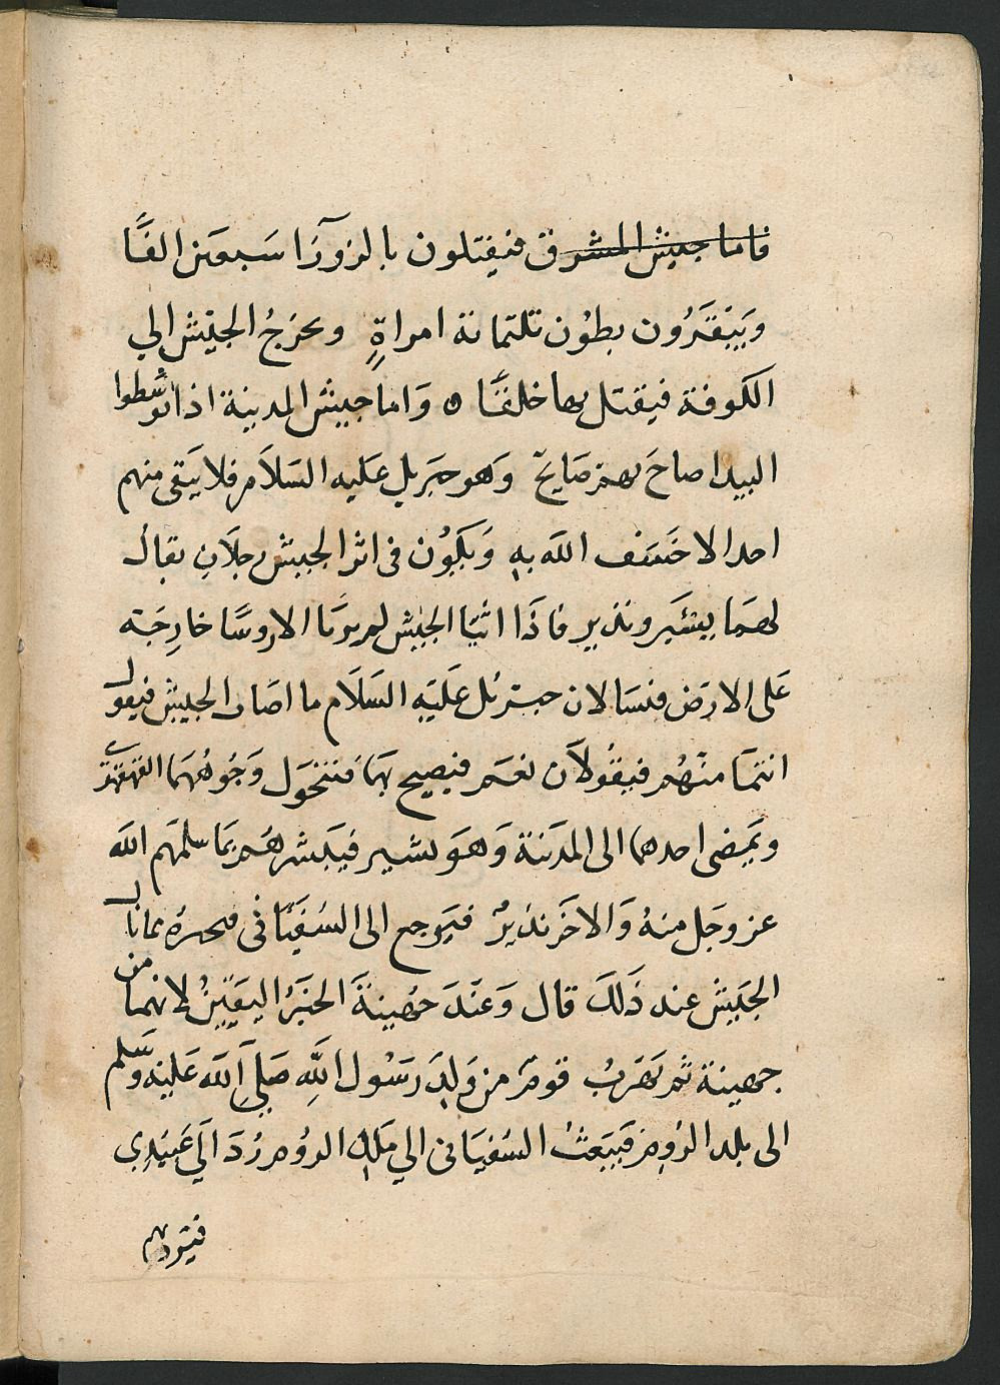 فاما جيش المشرق فيقتلون بالزورآ سَبعين الفًا
وَيَبْقَرُون بطوُن ثلثمائة امراةٍ ويخرجُ الجيْش الي
الكوفة فيقتل بها خلقًا ٥ وَاما جيش المدينة اذا توسَّطوا
البيدا صاحَ بهم صَايحٌ وَهو جبريل عَليه السَلاَم فلا يَبقى منهم
احد الا خَسَف اللَه بهِ وَيَكوُن فى اثر الجيش رجلاَنِ يقال
لهمَا بشَير ونذير فاذَا اتيَا الجَيش لم يريَا الا روسًا خارِجَة
عَلى الارَض فيسَالان جبرئل عَليَهِ السَلَام ما اصَاب الجيش فيقول
انتمَا منهُم فيقُولاَن نعَم فيصيح بهمَا فتتحَول وَجُوههُمَا القهقرىَ
ويَمضى احدهما الى المدَينة وَهوَ بشير فيبَشرهُم بمَا سلمَهم اللَه
عز وجَل منهُ وَالاخَر نذيرٌ فيَرجع الى السُفيَانى فيخبرهُ بما نال
الجَيش عند ذَلكَ قال وَعنَدَ جهُينةَ الخبَرُ اليقَينُ لانهما من
جهينة ثم يَهَربُ قومٌ من وَلِد رَسُول اللَّه صَلي اللَه عَليه وسَلم
الى بلد الرُومِ فيَبَعثُ السُفيَانى الي مَلك الروُم رُدَ اليَ عَبيَدِي
فيَردهم